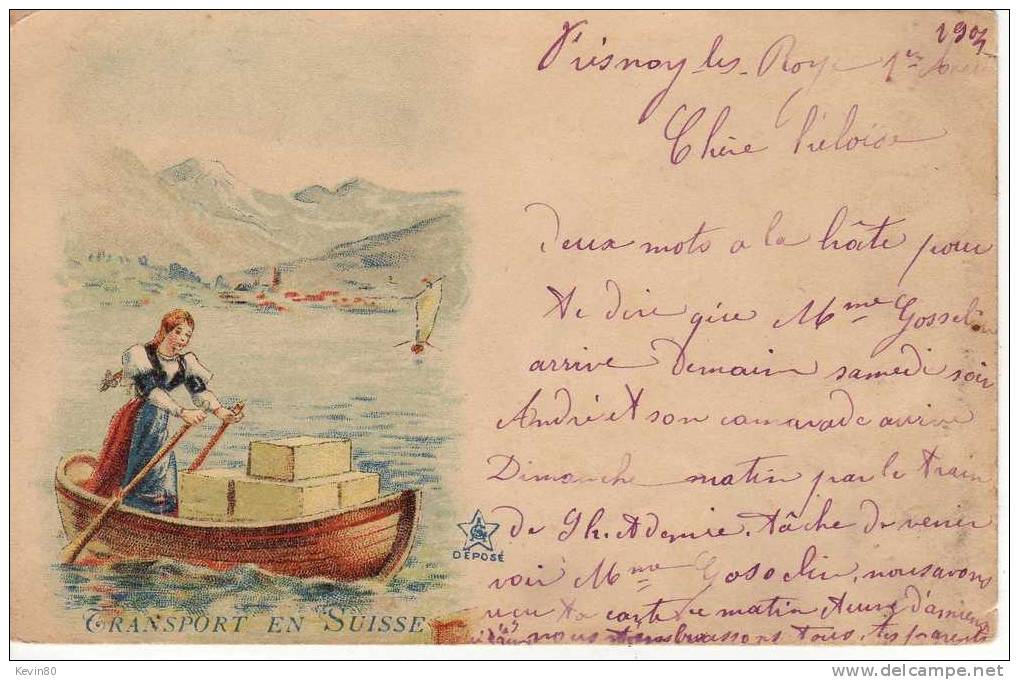 1903
Fresnoy-les-Roye 1er
Chère Héloïse
Deux mots a la hâte pour
te dire que Mme Gosselin
arrive Demain samedi soir
André et son camarade arrive
Dimanche matin par le train
de 9h. et Demie. tâche de venir
voir Mme Gosselin, nous avons
reçu ta carte ce matin d'amiens
nous t'embrassons tous, tes parents
DÉPOSÉ
TRANSPORT EN SUISSE
Kevin80
www.delcampe.net